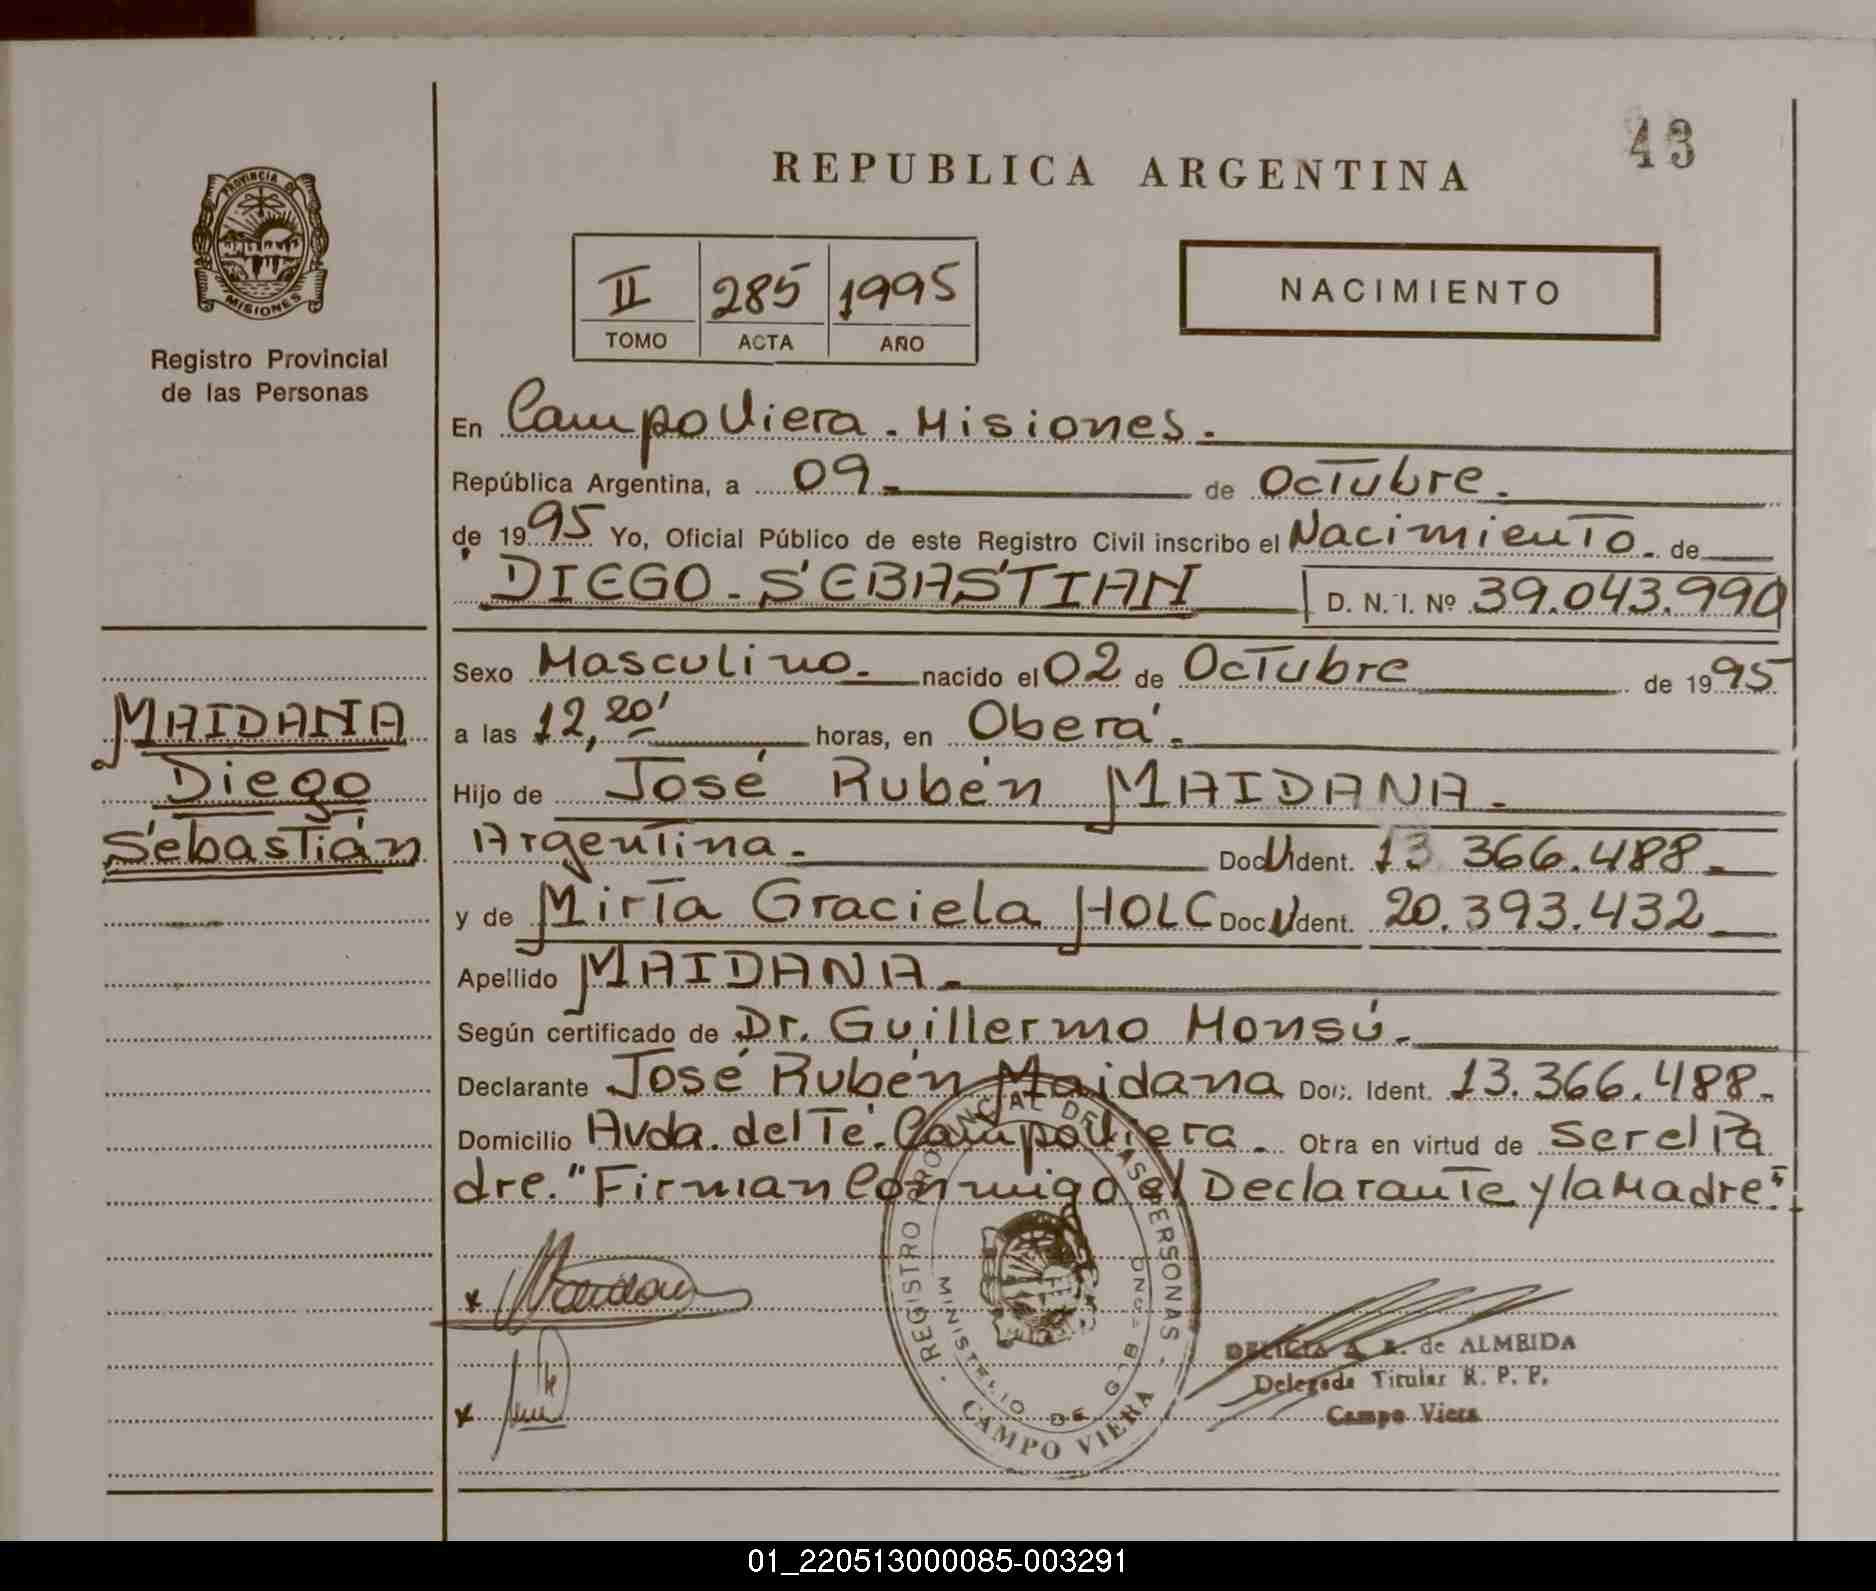 43
REPUBLICA ARGENTINA
PROVINCIA DE
MISIONES
Registro Provincial
de las Personas
II 285 1995
TOMO ACTA AÑO
NACIMIENTO
En Campo Viera. Misiones.
República Argentina, a 09 de Octubre.
de 1995 Yo, Oficial Público de este Registro Civil inscribo el Nacimiento. de
DIEGO. SEBASTIAN D. N. I. Nº 39.043.990
Sexo Masculino. nacido el 02 de Octubre de 1995
MAIDANA
Diego
Sebastián
a las 12,20' horas, en Oberá.
Hijo de José Rubén MAIDANA.
Argentina. Doc U Ident. 13 366.488.
y de Mirta Graciela HOLC Doc U Ident. 20.393.432
Apellido MAIDANA.
Según certificado de Dr. Guillermo Monsú.
Declarante José Rubén Maidana Doc. Ident. 13.366.488.
Domicilio Avda. del Té. Campo Viera. Obra en virtud de ser el Pa
dre. "Firman Conmigo el Declarante y la Madre"
REGISTRO PROVINCIAL DE LAS PERSONAS
MINISTERIO DE GOB
CAMPO VIERA
DELICIA A. R. de ALMEIDA
Delegada Titular R. P. P.
Campo Viera
01_220513000085-003291